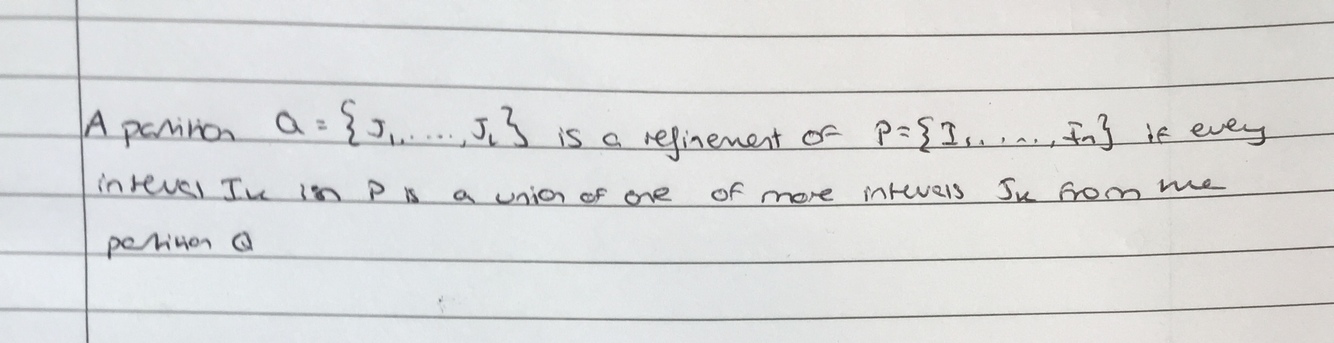 A partition Q = {J₁, ...., Jₗ} is a refinement of P = {I₁, ...., Iₙ} if every
interval Iₖ in P is a union of one of more intervals Jₖ from the
partition Q